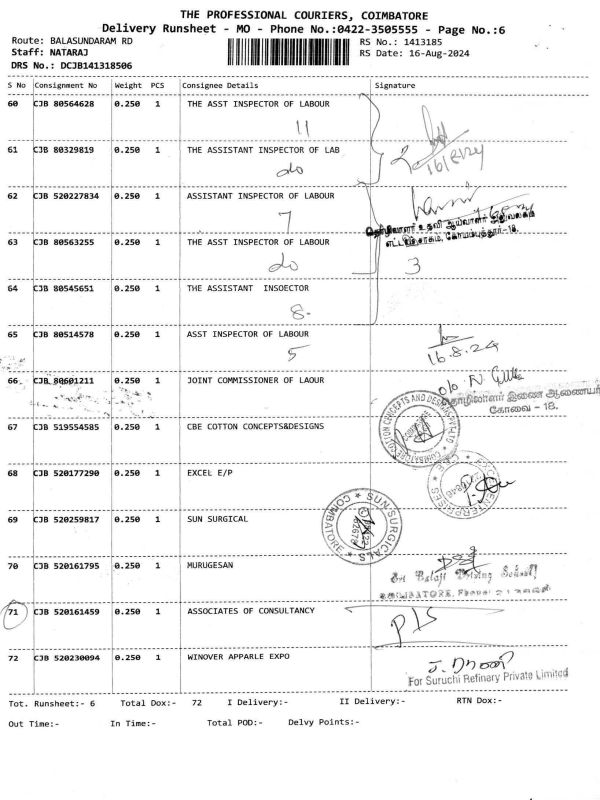 THE PROFESSIONAL COURIERS, COIMBATORE
Delivery Runsheet - MO - Phone No.:0422-3505555 - Page No.:6
Route: BALASUNDARAM RD
RS No.: 1413185
Staff: NATARAJ
RS Date: 16-Aug-2024
DRS No.: DCJB141318506
S No Consignment No Weight PCS Consignee Details Signature
60 CJB 80564628 0.250 1 THE ASST INSPECTOR OF LABOUR
11
61 CJB 80329819 0.250 1 THE ASSISTANT INSPECTOR OF LAB
do
16/8/24
62 CJB 520227834 0.250 1 ASSISTANT INSPECTOR OF LABOUR
7
தொழிலாளர் உதவி ஆய்வாளர் அலுவலகம்
எட்டாம் பாகம், கோயம்புத்தூர்-18.
63 CJB 80563255 0.250 1 THE ASST INSPECTOR OF LABOUR
do
3
64 CJB 80545651 0.250 1 THE ASSISTANT INSOECTOR
8.
65 CJB 80514578 0.250 1 ASST INSPECTOR OF LABOUR
5
16.8.24
66 CJB 80601211 0.250 1 JOINT COMMISSIONER OF LAOUR
தொழிலாளர் இணை ஆணையர்
கோவை - 18.
67 CJB 519554585 0.250 1 CBE COTTON CONCEPTS&DESIGNS
68 CJB 520177290 0.250 1 EXCEL E/P
69 CJB 520259817 0.250 1 SUN SURGICAL
SUN SURGICALS
COIMBATORE
70 CJB 520161795 0.250 1 MURUGESAN
Sri Balaji Driving School
COIMBATORE.
71 CJB 520161459 0.250 1 ASSOCIATES OF CONSULTANCY
P/S
72 CJB 520230094 0.250 1 WINOVER APPARLE EXPO
For Suruchi Refinary Private Limited
Tot. Runsheet:- 6 Total Dox:- 72 I Delivery:- II Delivery:- RTN Dox:-
Out Time:- In Time:- Total POD:- Delvy Points:-